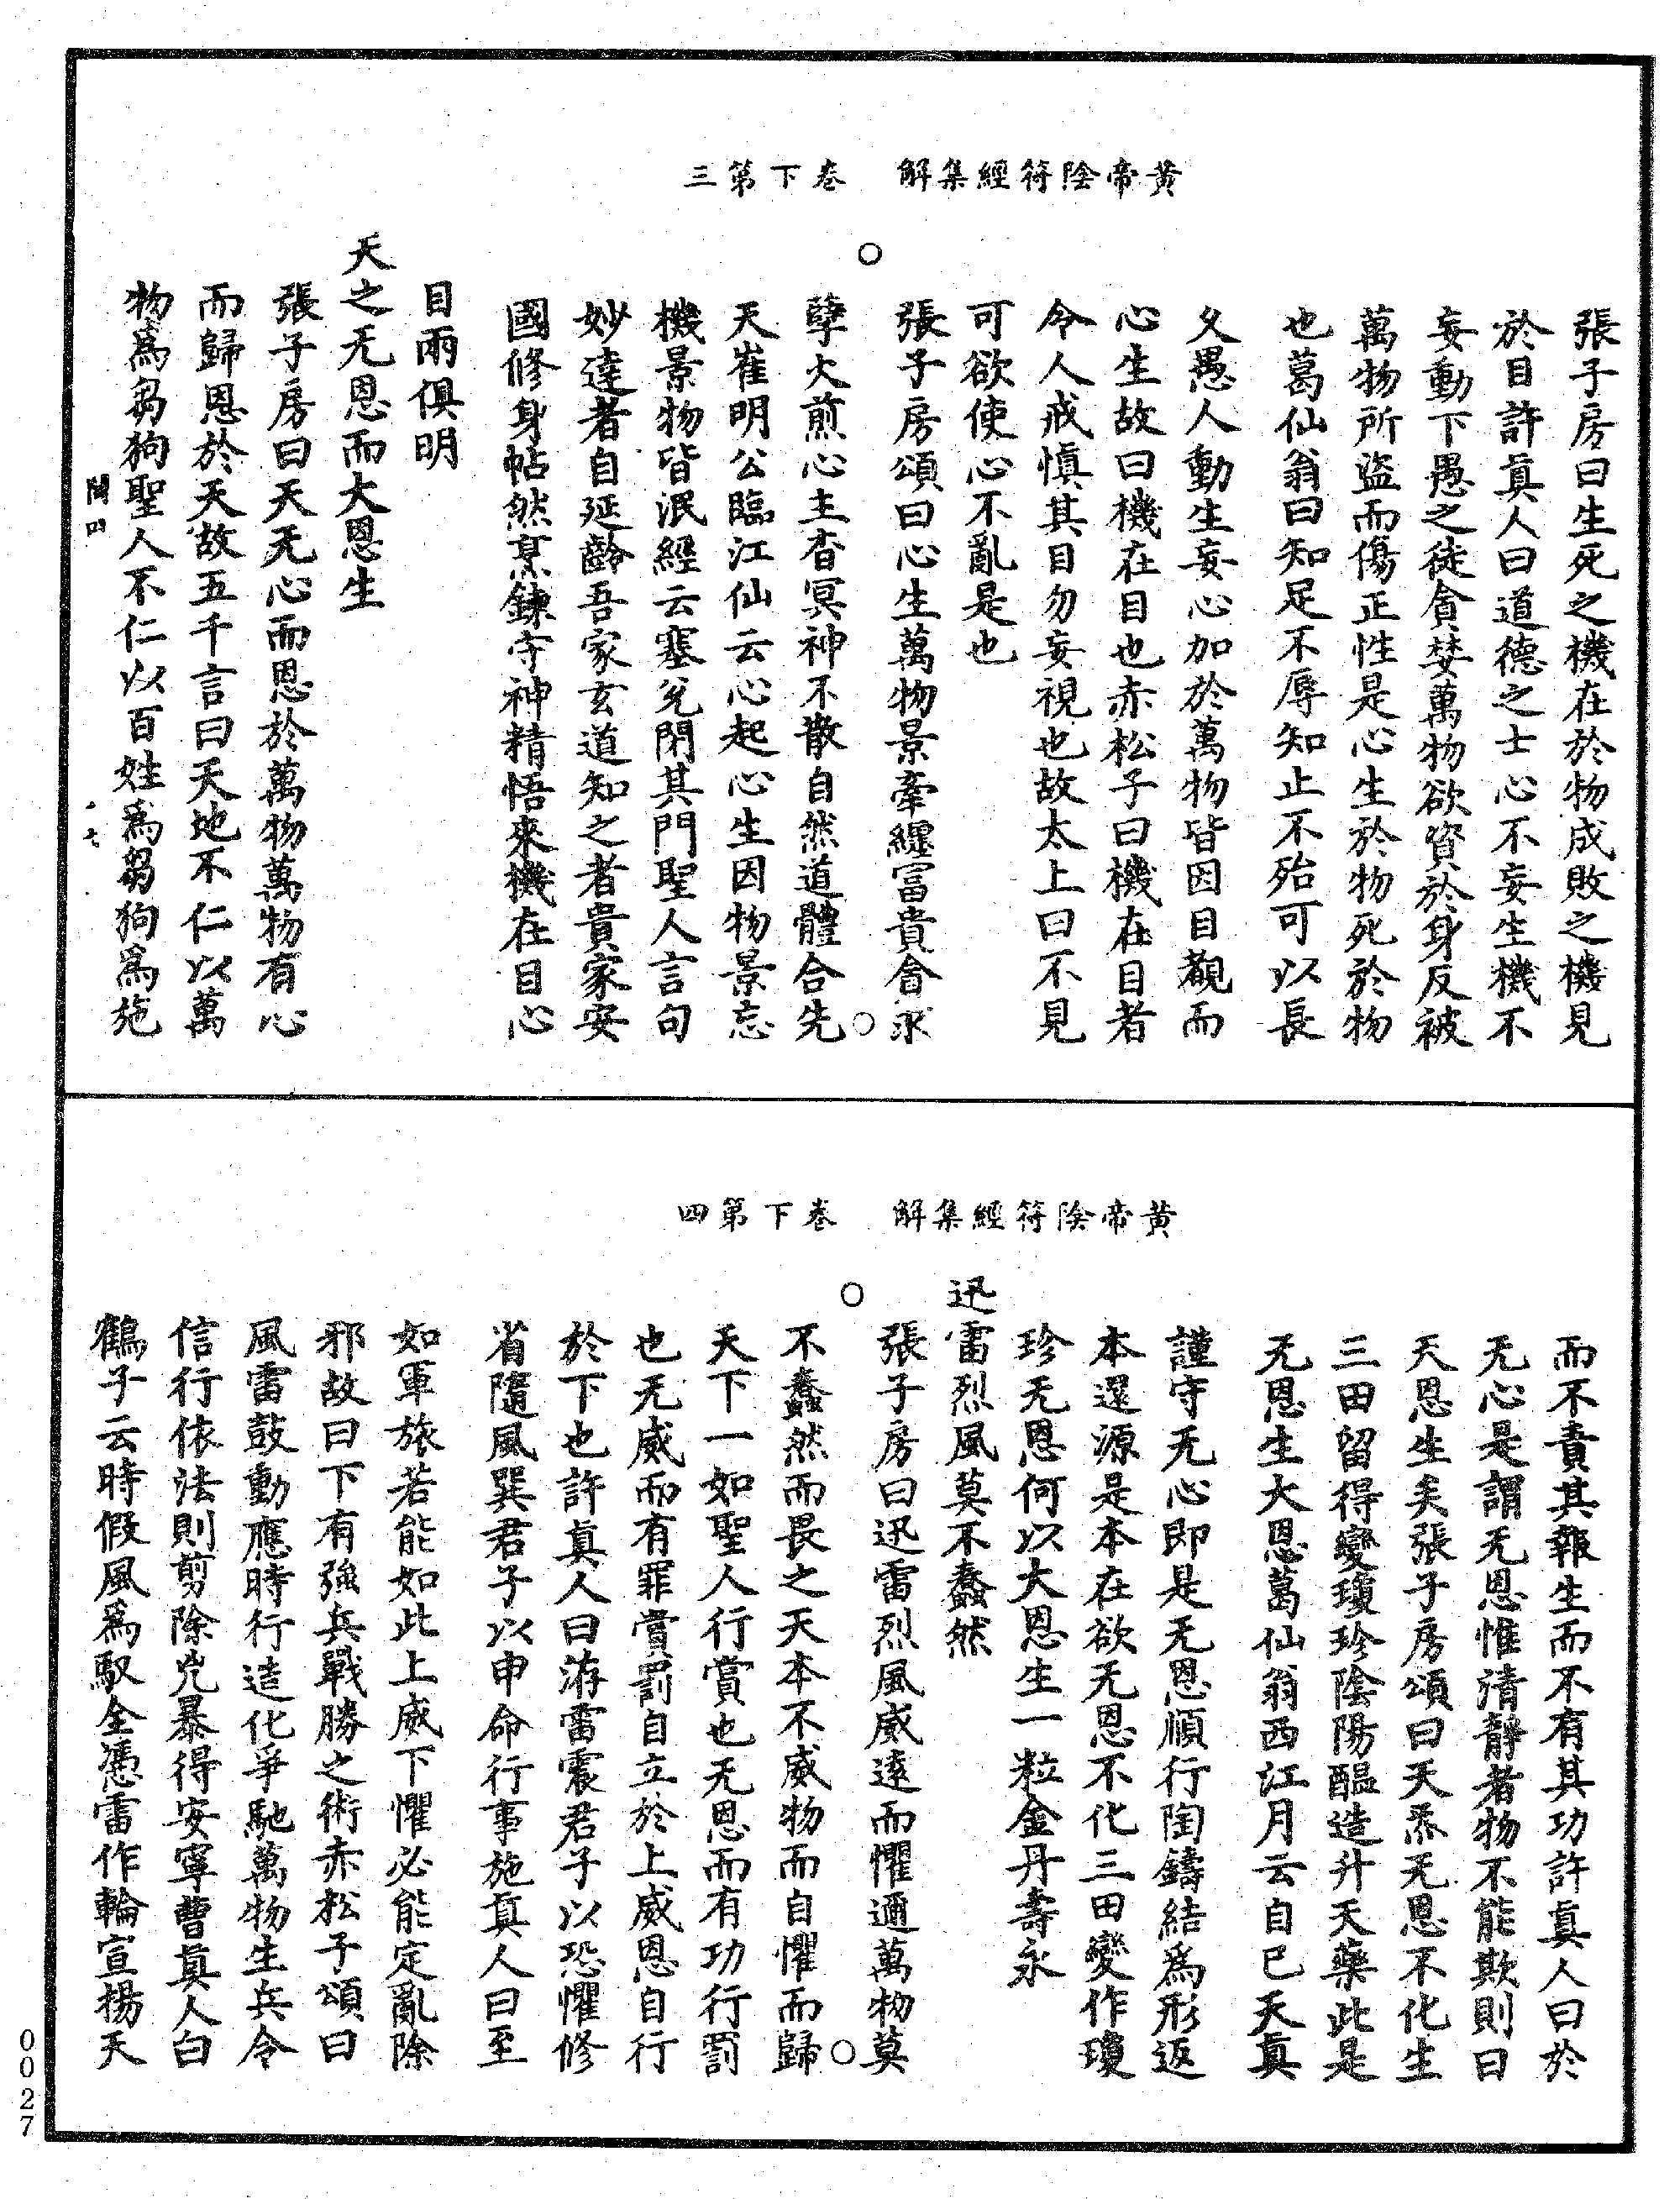 黃帝陰符經集解　卷下第三
張子房曰生死之機在於物成敗之機見
於目許真人曰道德之士心不妄生機不
妄動下愚之徒貪婪萬物欲資於身反被
萬物所盜而傷正性是心生於物死於物
也葛仙翁曰知足不辱知止不殆可以長
久愚人動生妄心加於萬物皆因目覩而
心生故曰機在目也赤松子曰機在目者
令人戒慎其目勿妄視也故太上曰不見
可欲使心不亂是也
張子房頌曰心生萬物景牽纏富貴貪求
孽火煎心主杳冥神不散自然道體合先
天崔明公臨江仙云心起心生因物景忘
機景物皆泯經云塞兌閉其門聖人言句
妙達者自延齡吾家玄道知之者貴家安
國修身帖然烹鍊守神精悟來機在目心
目兩俱明
天之无恩而大恩生
張子房曰天无心而恩於萬物萬物有心
而歸恩於天故五千言曰天地不仁以萬
物爲芻狗聖人不仁以百姓爲芻狗爲施
閏四
黃帝陰符經集解　卷下第四
而不責其報生而不有其功許真人曰於
无心是謂无恩惟清靜者物不能欺則曰
天恩生矣張子房頌曰天炁无恩不化生
三田留得變瓊珍陰陽醞造升天藥此是
无恩生大恩葛仙翁西江月云自己天真
謹守无心即是无恩順行陶鑄結爲形返
本還源是本在欲无恩不化三田變作瓊
珍无恩何以大恩生一粒金丹壽永
迅雷烈風莫不蠢然
張子房曰迅雷烈風威遠而懼邇萬物莫
不蠢然而畏之天本不威物而自懼而歸
天下一如聖人行賞也无恩而有功行罰
也无威而有罪賞罰自立於上威恩自行
於下也許真人曰洊雷震君子以恐懼修
省隨風巽君子以申命行事施真人曰至
如軍旅若能如此上威下懼必能定亂除
邪故曰下有強兵戰勝之術赤松子頌曰
風雷鼓動應時行造化爭馳萬物生兵令
信行依法則剪除兇暴得安寧曹真人白
鶴子云時假風爲馭全憑雷作輪宣揚天
0027